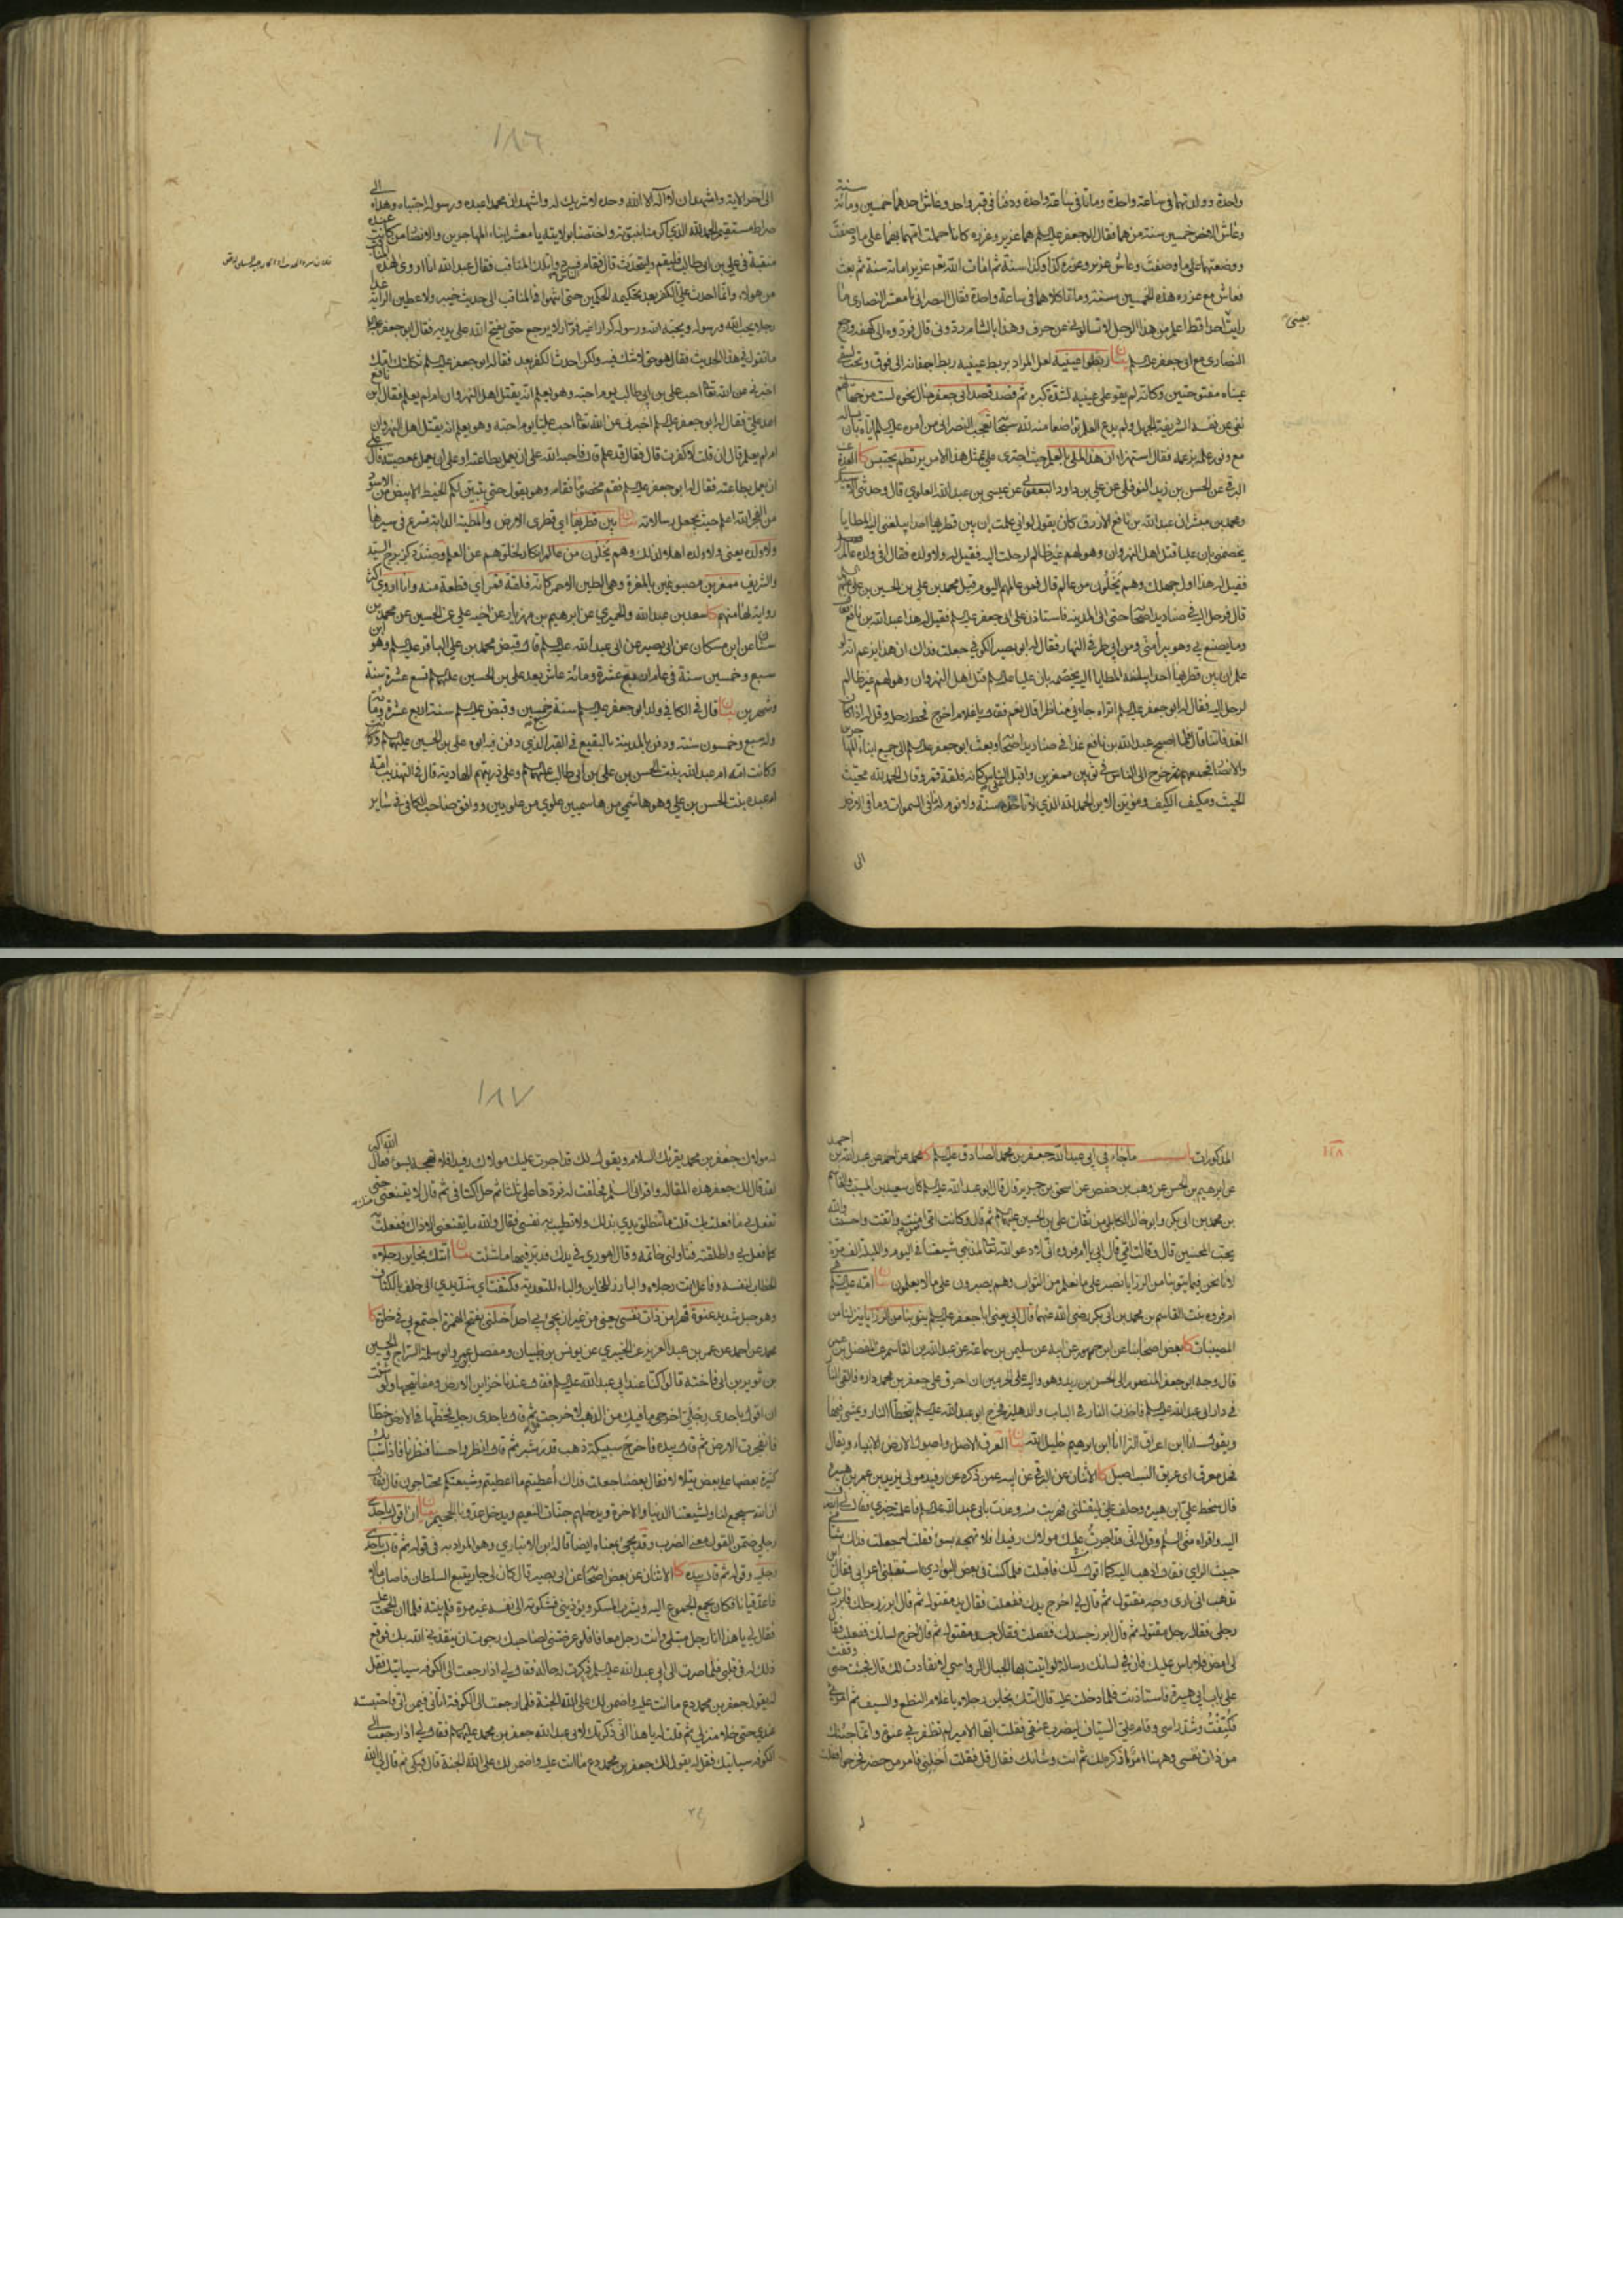 واحدة وولدتهما في ساعة واحدة وماتا في ساعة واحدة ودفنا في قبر واحد وعاش احدهما خمسين ومائة سنة
وعاش الاخر خمسين سنة من هما فقال ابو جعفر عليه السلم هما عزير وعزره كانا حملت امهما بهما على ما وصفت
ووضعتهما على ما وصفت وعاش عزير وعزره كذا وكذا سنة ثم امات الله تعم عزير امائة سنة ثم بعث
فعاش مع عزره هذه الخمسين سنة وماتا كلاهما في ساعة واحدة فقال النصراني يا معشر النصارى ما
رايت احدا قط اعلم من هذا الرجل لا تسالوني عن حرف وهذا بالشام ردوني قال فردوه الى كهفه ورجع
يعني
النصارى مع ابي جعفر عليه السلم بيان ربطوا عينيه لعل المراد بربط عينيه ربط اجفانه الى فوق
عيناه مفتوحتين وكانه لم يقو على
نفى عن نفسه الشريفة الجهل ولم يدع العلم تواضعا منه لله
مع وفور علمه بزعمه فقال استهزاء ان هذا لملي بالعلم حيث اجترى على مثل هذا الامر يرتطم يحتبس كا العدة
البرقي عن الحسن بن زيد النوفلي عن علي بن داود اليعقوبي عن عيسى بن عبد الله العلوي قال وحدثني
ومحمد بن مبشر ان عبد الله بن نافع الازرق كان يقول لو اني علمت ان بين قطريها احدا يبلغني اليه المطايا
يخصمني بان عليا قتل اهل النهروان وهو لهم غير ظالم لرحلت اليه فقيل له ولا ولده فقال افي ولده عالم
فقيل له هذا اول جهلك وهم يخلون من عالم قال فمن عالمهم اليوم قيل محمد بن علي بن الحسين بن علي
قال فرحل اليه في صناديد اصحابه حتى اتى المدينة فاستاذن على ابي جعفر عليه السلم فقيل له هذا عبد الله بن نافع
وما يصنع بي وهو يبرأ مني ومن ابي طرفي النهار فقال له ابو بصير الكوفي جعلت فداك ان هذا يزعم انه لو
علم ان بين قطريها احدا يبلغه المطايا اليه يخصمه بان عليا عليه السلم قتل اهل النهروان وهو لهم غير ظالم
لرحل اليه فقال له ابو جعفر عليه السلم اتراه جاءني مناظرا قال نعم فقال يا غلام اخرج فحط رحله وقل له اذا كان
الغد فاتنا قال فلما اصبح عبد الله بن نافع غدا في صناديد اصحابه وبعث ابو جعفر عليه السلم الى جميع ابناء المهاجرين
والانصار فجمعهم ثم خرج الى الناس في ثوبين ممغرين واقبل على الناس كانه فلقة قمر وقال الحمد لله محيث
الحيث ومكيف الكيف ومؤين الاين الحمد لله الذي لا تاخذه سنة ولا نوم له ما في السموات وما في الارض
الى
١٨٦
الى اخر الاية واشهد ان لا اله الا الله وحده لا شريك له واشهد ان محمدا عبده ورسوله اجتباه وهداه الى
صراط مستقيم الحمد لله الذي اكرمنا بنبوته واختصنا بولايته يا معشر ابناء المهاجرين والانصار من كانت عنده
منقبة في علي بن ابي طالب فليقم وليتحدث قال فقام الناس فسردوا تلك المناقب فقال عبد الله انا اروي لهذه
من هولاء وانما احدث علي الكفر بعد تحكيمه الحكمين حتى انتهوا في المناقب الى حديث خيبر لاعطين الراية غدا
رجلا يحب الله ورسوله ويحبه الله ورسوله كرارا غير فرار لا يرجع حتى يفتح الله على يديه فقال ابو جعفر عليه
ما تقول في هذا الحديث فقال هو حق لا شك فيه ولكن احدث الكفر بعد فقال له ابو جعفر عليه السلم ثكلتك امك
اخبرني عن الله تعا احب علي بن ابي طالب يوم احبه وهو يعلم انه يقتل اهل النهروان ام لم يعلم فقال ابن نافع
اعد علي فقال له ابو جعفر عليه السلم اخبرني عن الله تعا احب عليا يوم احبه وهو يعلم انه يقتل اهل النهروان
ام لم يعلم قال ان قلت لا كفرت قال فقال قد علم قال فاحبه الله على ان يعمل بطاعته او على ان يعمل بمعصيته قال على
ان يعمل بطاعته فقال له ابو جعفر عليه السلم فقم مخصوما فقام وهو يقول حتى يتبين لكم الخيط الابيض من الاسود
من الفجر الله اعلم حيث يجعل رسالاته بيان بين قطريها اي قطري الارض والمطية الدابة تسرع في سيرها
ولا ولده يعني ولا ولده اهلا لذلك وهم يخلون من عالم انكار لخلوهم عن العلم
والشريف ممغرين مصبوغين بالمغرة وهي الطين الاحمر كانه فلقة قمر اي قطعة منه وانا اروي اكثر
رواية لها منهم كا سعد بن عبد الله والحميري عن ابراهيم بن مهزيار عن اخيه علي عن الحسين عن محمد بن
سنان عن ابن مسكان عن ابي بصير عن ابي عبد الله عليه السلم قال قبض محمد بن علي الباقر عليه السلم وهو ابن
سبع وخمسين سنة في عام اربع عشرة ومائة عاش بعد علي بن الحسين عليهما السلم تسع عشرة سنة
وشهرين بيان قال في الكافي ولد ابو جعفر عليه السلم سنة سبع وخمسين وقبض عليه السلم سنة اربع عشرة ومائة
وله سبع وخمسون سنة ودفن بالمدينة بالبقيع في القبر الذي دفن فيه ابوه علي بن الحسين عليهما السلم
وكانت امه ام عبد الله بنت الحسن بن علي بن ابي طالب عليهم السلم وعلى ذريتهم الهادية قال في التهذيب امه
ام عبده بنت الحسن بن علي وهو هاشمي من هاشميين علوي من علويين ووافق صاحب الكافي في ساير
المذكورات باب ما جاء في ابي عبد الله جعفر بن محمد الصادق عليه السلم كا محمد عن احمد عن عبد الله بن احمد
١١٨
عن ابراهيم بن الحسن عن وهب بن حفص عن اسحق بن جرير قال قال ابو عبد الله عليه السلم كان سعيد بن المسيب والقاسم
بن محمد بن ابي بكر وابو خالد الكابلي من ثقات علي بن الحسين عليهما السلم ثم قال وكانت امي ممن امنت واتقت واحسنت والله
يحب المحسنين قال وقالت امي قال ابي يا ام فروه اني لادعو الله تعا لمذنبي شيعتنا في اليوم والليلة الف مرة
لانا نحن فيما ينوبنا من الرزايا نصبر على ما نعلم من الثواب وهم يصبرون على ما لا يعلمون بيان امه عليه السلم هي
ام فروه بنت القاسم بن محمد بن ابي بكر رضي الله عنهما قال ابي يعني ابا جعفر عليه السلم ينوبنا من الرزايا ينزلنا من
المصيبات كا بعض اصحابنا عن ابن جمهور عن ابيه عن سليمن بن سماعة عن عبد الله بن القاسم عن المفضل بن عمر
قال وجه ابو جعفر المنصور الى الحسن بن زيد وهو واليه على الحرمين ان احرق على جعفر بن محمد داره فالقى النار
في دار ابي عبد الله عليه السلم فاخذت النار في الباب والدهليز فخرج ابو عبد الله عليه السلم يتخطأ النار ويمشي فيها
ويقول انا ابن اعراق الثرى انا ابن ابراهيم خليل الله بيان العرق الاصل واصول الارض الانبياء ويقال
فحل معرق اي عريق النسب اصيل كا الاثنان عن البرقي عن ابيه عمن ذكره عن رفيد مولى يزيد بن عمر بن هبيره
قال سخط علي ابن هبيره وحلف علي ليقتلني فهربت منه وعذت بابي عبد الله عليه السلم فاعلمته خبري فقال لي انصرف
اليه واقراه مني السلم وقل له اني قد اجرت عليك مولاك رفيدا فلا تهجه بسوء فقلت له جعلت فداك شامي
خبيث الراي فقال اذهب اليه كما اقول لك فاقبلت فلما كنت في بعض البوادي استقبلني اعرابي فقال اين
تذهب اني ارى وجه مقتول ثم قال لي اخرج يدك ففعلت فقال يد مقتول ثم قال ابرز رجلك فابرزت
رجلي فقال رجل مقتول ثم قال ابرز جسدك ففعلت فقال جسد مقتول ثم قال اخرج لسانك ففعلت فقال
لي امض فلا باس عليك فان في لسانك رسالة لو اتيت بها الجبال الرواسي لانقادت لك قال فجئت حتى وقفت
على باب ابن هبيرة فاستاذنت فلما دخلت عليه قال اتتك بخاين رجلاه يا غلام النطع والسيف ثم امر بي
فكتفت وشد راسي وقام علي السياف ليضرب عنقي فقلت ايها الامير لم تظفر بي عنوة وانما جئتك
من ذات نفسي وههنا امر اذكره لك ثم انت وشانك فقال قل فقلت اخلني فامر من حضر فخرجوا فقلت
١٨٧
له مولاك جعفر بن محمد يقرئك السلام ويقول لك قد اجرت عليك مولاك رفيدا فلا تهجه بسوء فقال الله اكبر
لقد قال لك جعفر هذه المقالة واقراني السلم فحلفت له فردها علي ثلثا ثم حل اكتافي ثم قال لا يقنعني حتى
تفعل بي ما فعلت بك قلت ما تنطلق يدي بذلك ولا تطيب به نفسي فقال والله ما يقنعني الا ذاك ففعلت به
كما فعل بي واطلقته فناولني خاتمه وقال اموري في يدك فدبر فيها ما شئت بيان اتتك بخاين رجلاه
الخطاب لنفسه وفاعل اتت رجلاه والبارز للخاين والباء للتعدية فكتفت اي شد يدي الى خلف بالكتاف
وهو حبل شديد عنوة قهرا من ذات نفسي يعني من غير ان يجئ بي احد اخلني بفتح الهمزة اجتمع بي في خلوة كا
محمد عن احمد عن عمر بن عبد العزيز عن الخيبري عن يونس بن ظبيان ومفضل بن عمر وابو سلمة السراج والحسين
بن ثوير بن ابي فاخته قالوا كنا عند ابي عبد الله عليه السلم فقال عندنا خزاين الارض ومفاتيحها ولو شئت
ان اقول باحدى رجلي اخرجي ما فيك من الذهب لاخرجت ثم قال باحدى رجليه فخطها في الارض خطا
فانفرجت الارض ثم قال بيده فاخرج سبيكة ذهب قدر شبر ثم قال انظروا حسنا فنظرنا فاذا سبائك
كثيرة بعضها على بعض يتلالا فقال بعضنا جعلت فداك اعطيتم ما اعطيتم وشيعتكم محتاجون قال فقال
ان الله سيجمع لنا ولشيعتنا الدنيا والاخرة ويدخلهم جنات النعيم ويدخل عدونا الجحيم بيان ان اقول باحدى
رجلي ضمن القول معنى الضرب وقد يجئ بمعناه ايضا قاله ابن الانباري وهو المراد به في قوله ثم قال باحدى
رجليه وقوله ثم قال بيده كا الاثنان عن بعض اصحابنا عن ابي بصير قال كان لي جار يتبع السلطان فاصاب مالا
فاعد قيانا فكان يجمع الجموع اليه ويشرب المسكر ويوذيني فشكوته الى نفسه غير مرة فلم ينته فلما ان الححت عليه
فقال لي يا هذا انا رجل مبتلى وانت رجل معافا فلو عرضتني لصاحبك رجوت ان ينقذني الله بك فوقع
ذلك له في قلبي فلما صرت الى ابي عبد الله عليه السلم ذكرت له حاله فقال لي اذا رجعت الى الكوفه سياتيك فقل
له يقول جعفر بن محمد دع ما انت عليه واضمن لك على الله الجنة فلما رجعت الى الكوفة اتاني فيمن اتى فاحتبسته
عندي حتى خلا منزلي ثم قلت له يا هذا اني ذكرتك لابي عبد الله جعفر بن محمد عليهما السلم فقال لي اذا رجعت الى
الكوفه سياتيك فقل له يقول لك جعفر بن محمد دع ما انت عليه واضمن لك على الله الجنة قال فبكى ثم قال لي الله